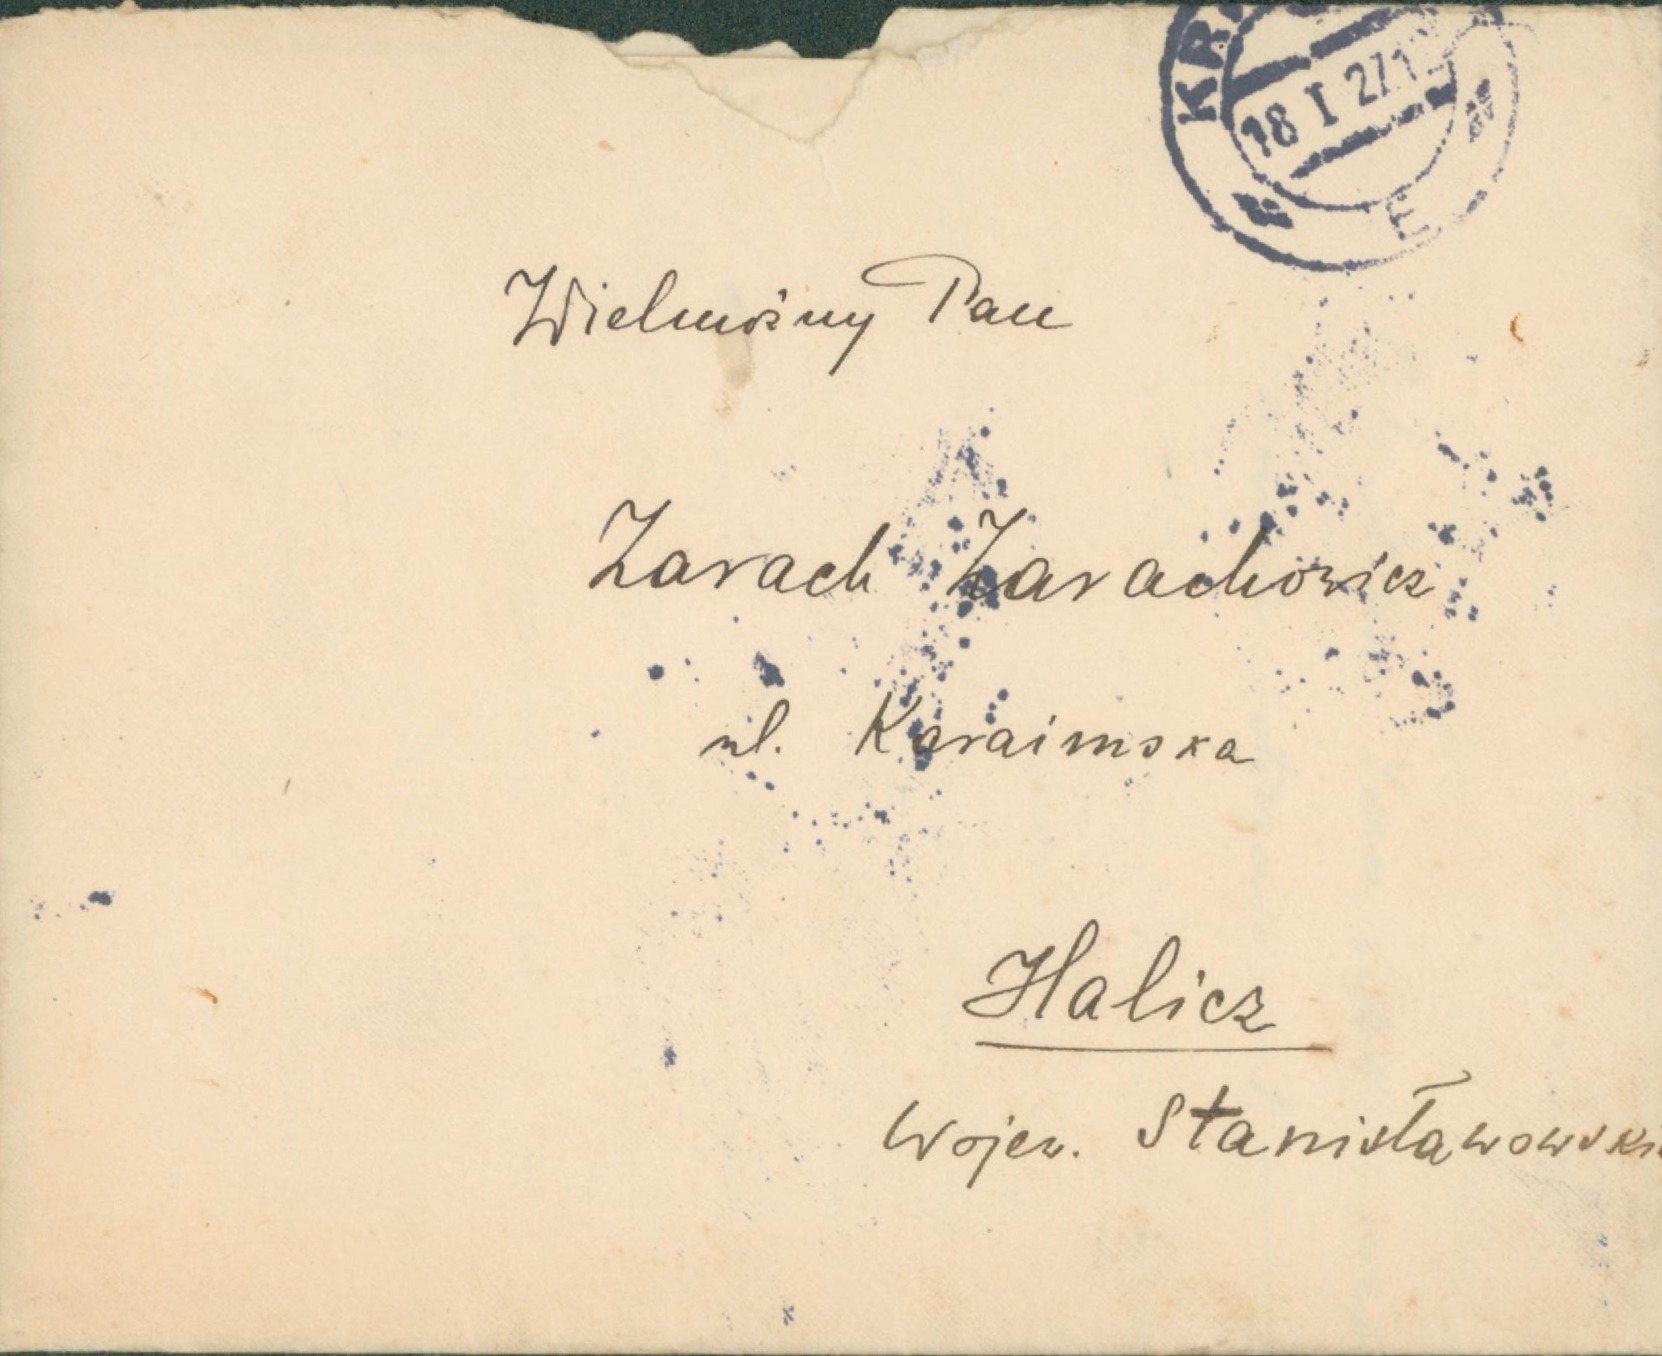 18 I 27 1
E
Wielmożny Pan
Zarach Zarachowicz
ul. Karaimska
Halicz
Wojew. Stanisławowskie